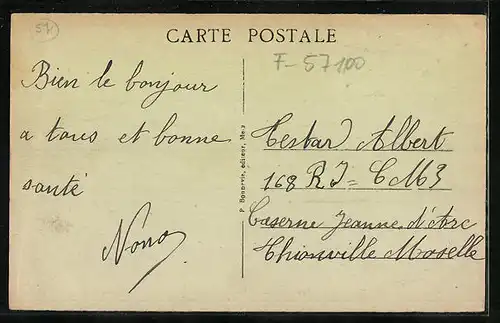 571
CARTE POSTALE
F-57100
Bien le bonjour
a tous et bonne
santé
Nono
P. Bonnarvie, éditeur, Metz
Testar Albert
168 R I = C M 3
Caserne Jeanne d'Arc
Thionville Moselle